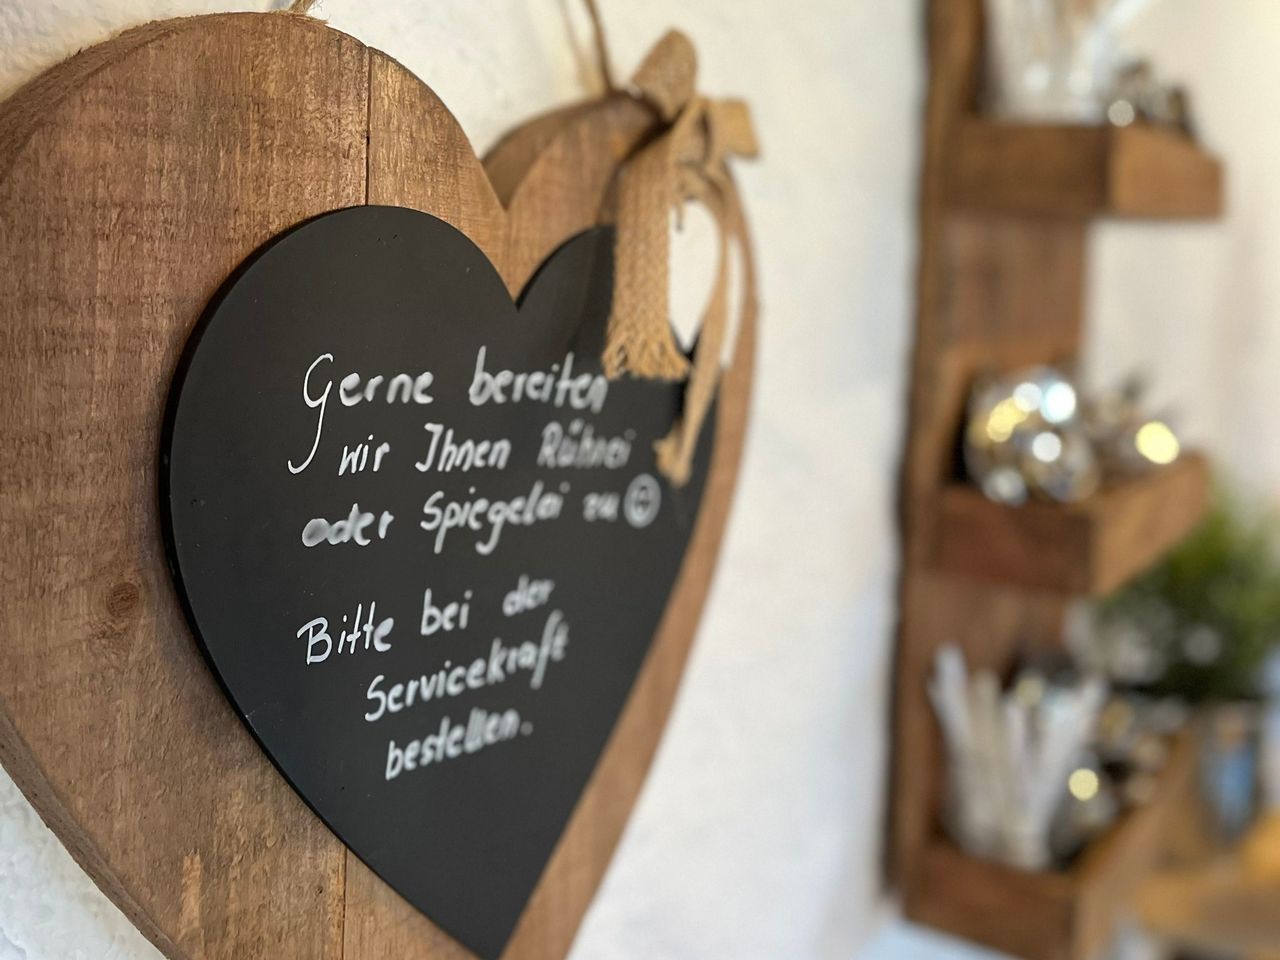 Gerne bereiten
wir Ihnen Rührei
oder Spiegelei zu ☺
Bitte bei der
Servicekraft
bestellen.